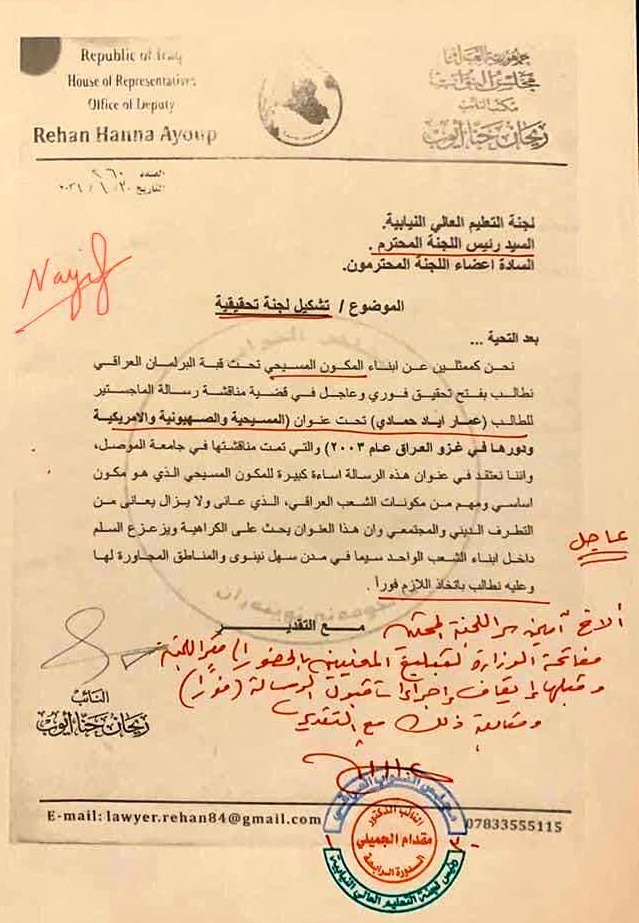 Republic of Iraq
House of Representatives
Office of Deputy
Rehan Hanna Ayoup
جمهورية العراق
مجلس النواب
مكتب النائب
ريحان حنا أيوب
العدد ٩٦٠
التاريخ ٢٠٢١/١٠/٢٠
Nayif
لجنة التعليم العالي النيابية.
السيد رئيس اللجنة المحترم .
السادة اعضاء اللجنة المحترمون.
الموضوع / تشكيل لجنة تحقيقية
بعد التحية ...
نحن كممثلين عن ابناء المكون المسيحي تحت قبة البرلمان العراقي
نطالب بفتح تحقيق فوري وعاجل في قضية مناقشة رسالة الماجستير
للطالب (عمار اياد حمادي) تحت عنوان (المسيحية والصهيونية والامريكية
ودورها في غزو العراق عام ٢٠٠٣) والتي تمت مناقشتها في جامعة الموصل،
واننا نعتقد في عنوان هذه الرسالة اساءة كبيرة للمكون المسيحي الذي هو مكون
اساسي ومهم من مكونات الشعب العراقي، الذي عانى ولا يزال يعاني من
التطرف الديني والمجتمعي وان هذا العنوان يحث على الكراهية ويزعزع السلم
داخل ابناء الشعب الواحد سيما في مدن سهل نينوى والمناطق المجاورة لها
وعليه نطالب باتخاذ اللازم فوراً .
عاجل
مع التقدير
الاخ أمين سر اللجنة
مفاتحة الوزارة لتبليغ المعنيين بالحضور الى مقر اللجنة
وقبلها إيقاف إجراءات قبول الرسالة (فوراً)
ومتابعة ذلك مع التقدير
النائب
ريحان حنا أيوب
E-mail: lawyer.rehan84@gmail.com
07833555115
مجلس النواب العراقي
النائب الدكتور
مقدام الجميلي
الدورة الرابعة
رئيس لجنة التعليم العالي النيابية